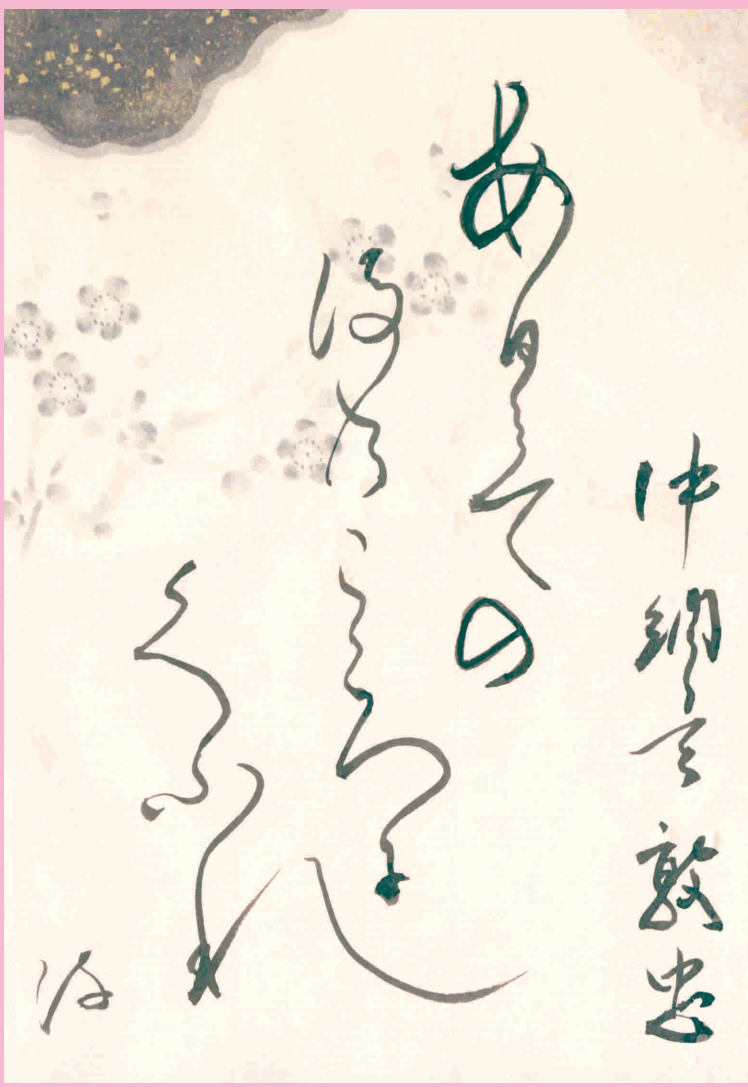 中納言敦忠
あひ見ての
後のこゝろに
くらふれ
は